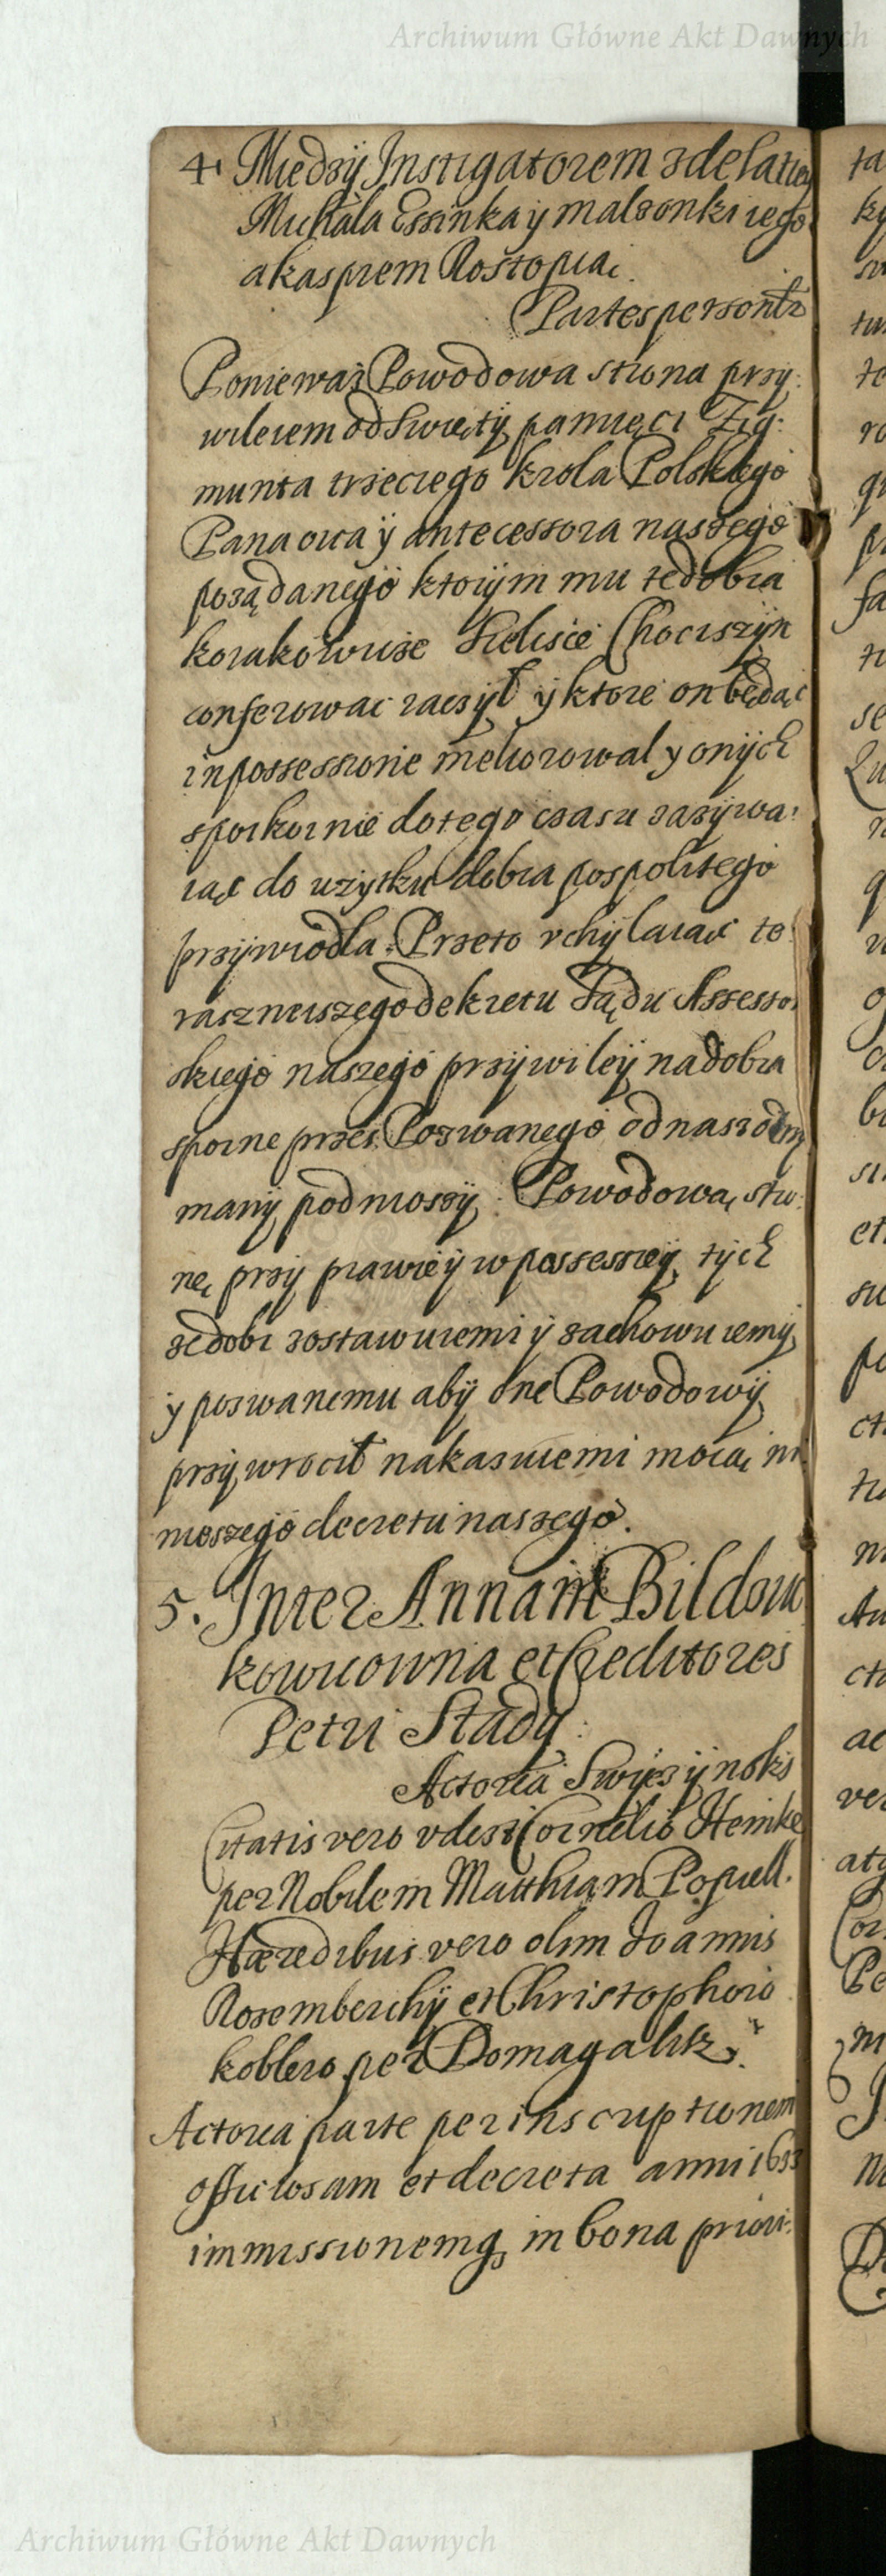 Archiwum Główne Akt Dawnych
4 Miedzÿ Instigatorem z delatiey
Michala Essinka ÿ malzonki iego
a kasprem Rostopczą
Partes personłr
Poniewaz Powodowa strona przÿ:
wileiem od Swiętÿ pamięci Zig:
munta trzeciego krola Polskiego
Pana oica ÿ antecessora naszego
pozą danego ktorÿm mu te dobra
Sielisce Chociszÿn
conferowac raczÿł ÿ ktore on będąc
in possessione meliorowal y onÿch
spokoinie do tego czasu zazÿwa:
iąc do uzytku dobra pospolitego
przÿwiodla. Przeto vchÿlaiąc te:
raznieiszego dekretu Sądu Assesso
skiego naszego przÿwileÿ na dobra
sporne przez Pozwanego od nas otrzÿ
manÿ podnioszÿ. Powodową stro:
nę przÿ prawie ÿ w possessieÿ tÿch
ze dobr zostawuiemi ÿ zachowuiemÿ
ÿ pozwanemu abÿ one Powodowÿ
przÿwrocił nakazuiemi mocą ni
nieszego decretu naszego.
5. Inter Annam Bildziu
kowicowna et Creditores
Petri Stady:
Actorea Swięzÿnski
Citatis vero vdesi Cornelio Hemke
per Nobilem Matthiam Popiell.
Hæredibus vero olim Joannis
Rosemberchÿ et Christophoro
koblero per Domagalitz.
Actorea parte per inscriptionem
officiosam et decreta anni 1633
immissionemq₃ in bona priori:
Archiwum Główne Akt Dawnych